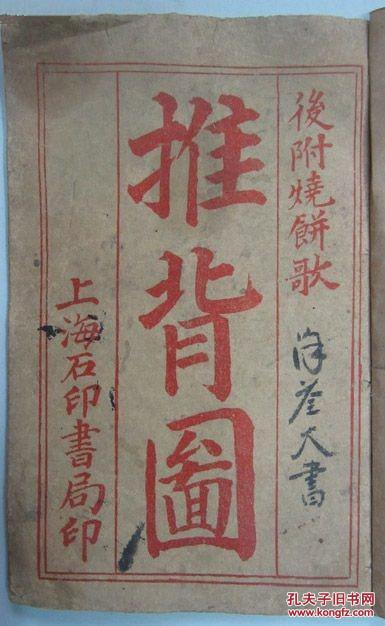 後附燒餅歌
大書
推背圖
上海石印書局印
孔夫子旧书网